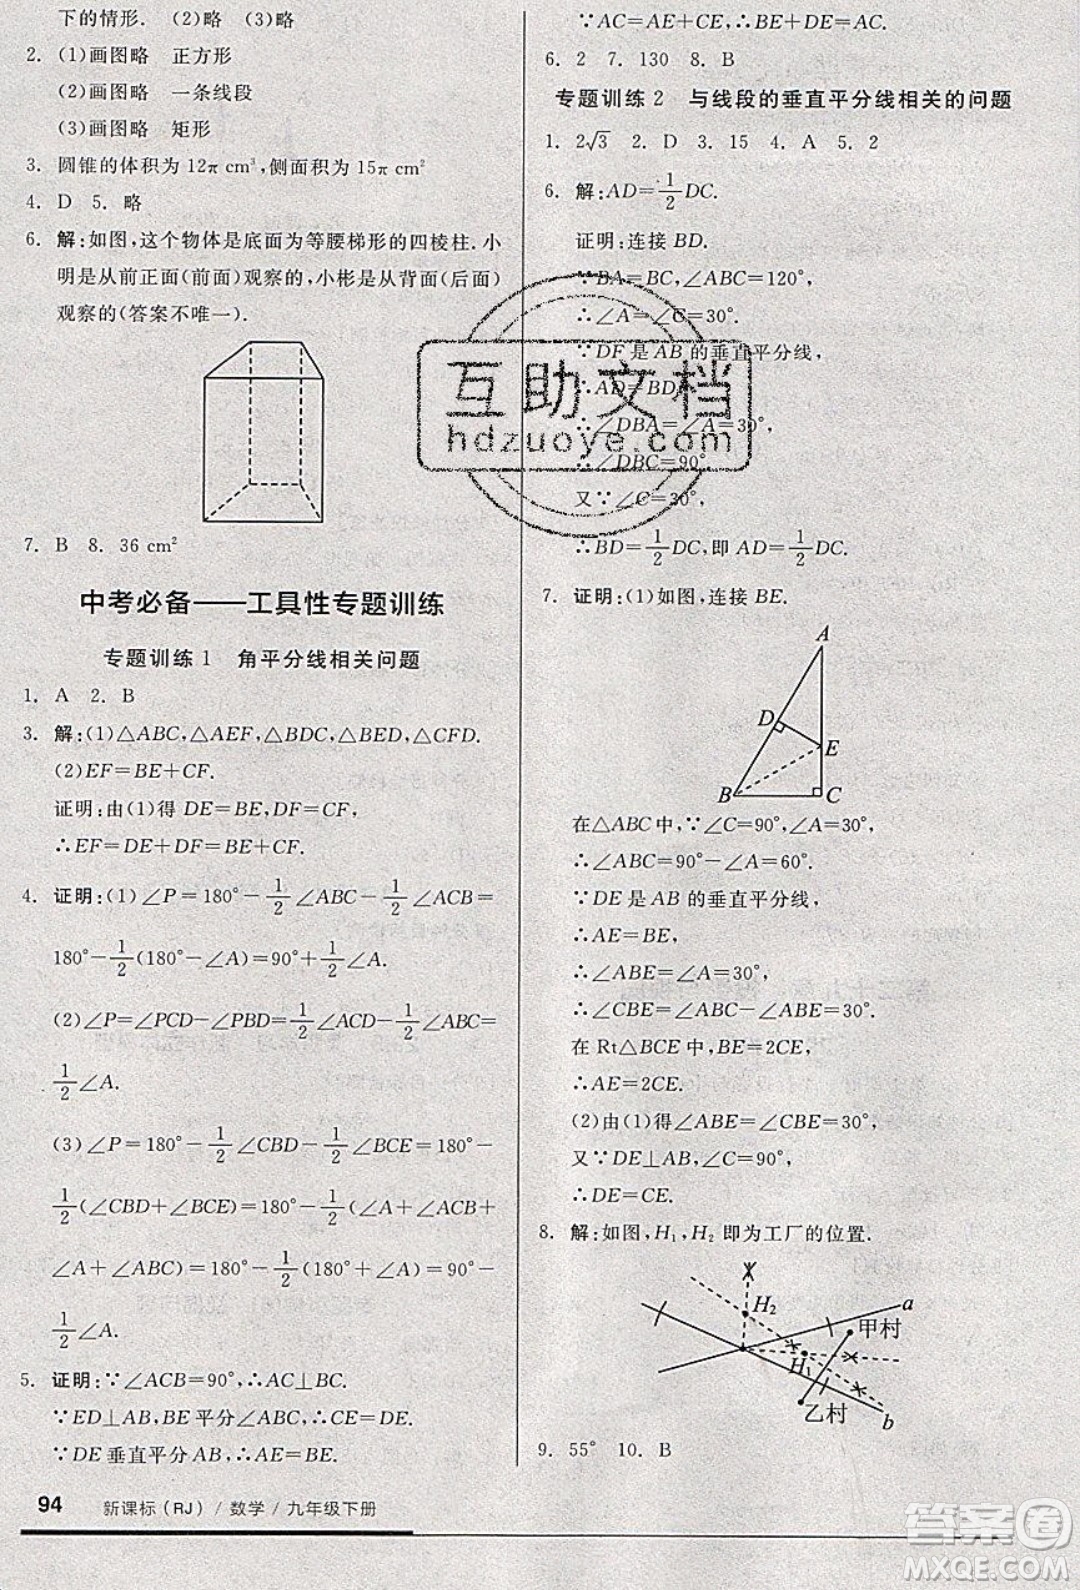 下的情形. (2)略 (3)略
2. (1)画图略 正方形
(2)画图略 一条线段
(3)画图略 矩形
3. 圆锥的体积为 12π cm³,侧面积为 15π cm²
4. D 5. 略
6. 解:如图,这个物体是底面为等腰梯形的四棱柱. 小
明是从前正面(前面)观察的,小彬是从背面(后面)
观察的(答案不唯一).
7. B 8. 36 cm²
中考必备——工具性专题训练
专题训练 1 角平分线相关问题
1. A 2. B
3. 解:(1)△ABC,△AEF,△BDC,△BED,△CFD.
(2)EF=BE+CF.
证明:由(1)得 DE=BE,DF=CF,
∴EF=DE+DF=BE+CF.
4. 证明:(1)∠P=180°-1/2∠ABC-1/2∠ACB=
180°-1/2(180°-∠A)=90°+1/2∠A.
(2)∠P=∠PCD-∠PBD=1/2∠ACD-1/2∠ABC=
1/2∠A.
(3)∠P=180°-1/2∠CBD-1/2∠BCE=180°-
1/2(∠CBD+∠BCE)=180°-1/2(∠A+∠ACB+
∠A+∠ABC)=180°-1/2(180°+∠A)=90°-
1/2∠A.
5. 证明:∵∠ACB=90°,∴AC⊥BC.
∵ED⊥AB,BE 平分∠ABC,∴CE=DE.
∵DE 垂直平分 AB,∴AE=BE.
94 新课标(RJ) / 数学 / 九年级下册
∵AC=AE+CE,∴AC=BE+DE.
6. 2 7. 130 8. B
专题训练 2 与线段的垂直平分线相关的问题
1. 2√3 2. D 3. 15 4. A 5. 2
6. 解:AD=1/2DC.
证明:连接 BD.
∵BA=BC,∠ABC=120°,
∴∠A=∠C=30°.
∵DF 是 AB 的垂直平分线,
∴AD=BD,
∴∠DBA=∠A=30°,
∴∠DBC=90°.
又∵∠C=30°,
∴BD=1/2DC,即 AD=1/2DC.
7. 证明:(1)如图,连接 BE.
A
D
E
B
C
在△ABC 中,∵∠C=90°,∠A=30°,
∴∠ABC=90°-∠A=60°.
∵DE 是 AB 的垂直平分线,
∴AE=BE,
∴∠ABE=∠A=30°,
∴∠CBE=∠ABC-∠ABE=30°.
在 Rt△BCE 中,BE=2CE,
∴AE=2CE.
(2)由(1)得∠ABE=∠CBE=30°,
又∵DE⊥AB,∠C=90°,
∴DE=CE.
8. 解:如图,H₁,H₂ 即为工厂的位置.
H₂
a
甲村
H₁
乙村
b
9. 55° 10. B
互助文档
hdzuoye.com
答案圈
MXQE.COM